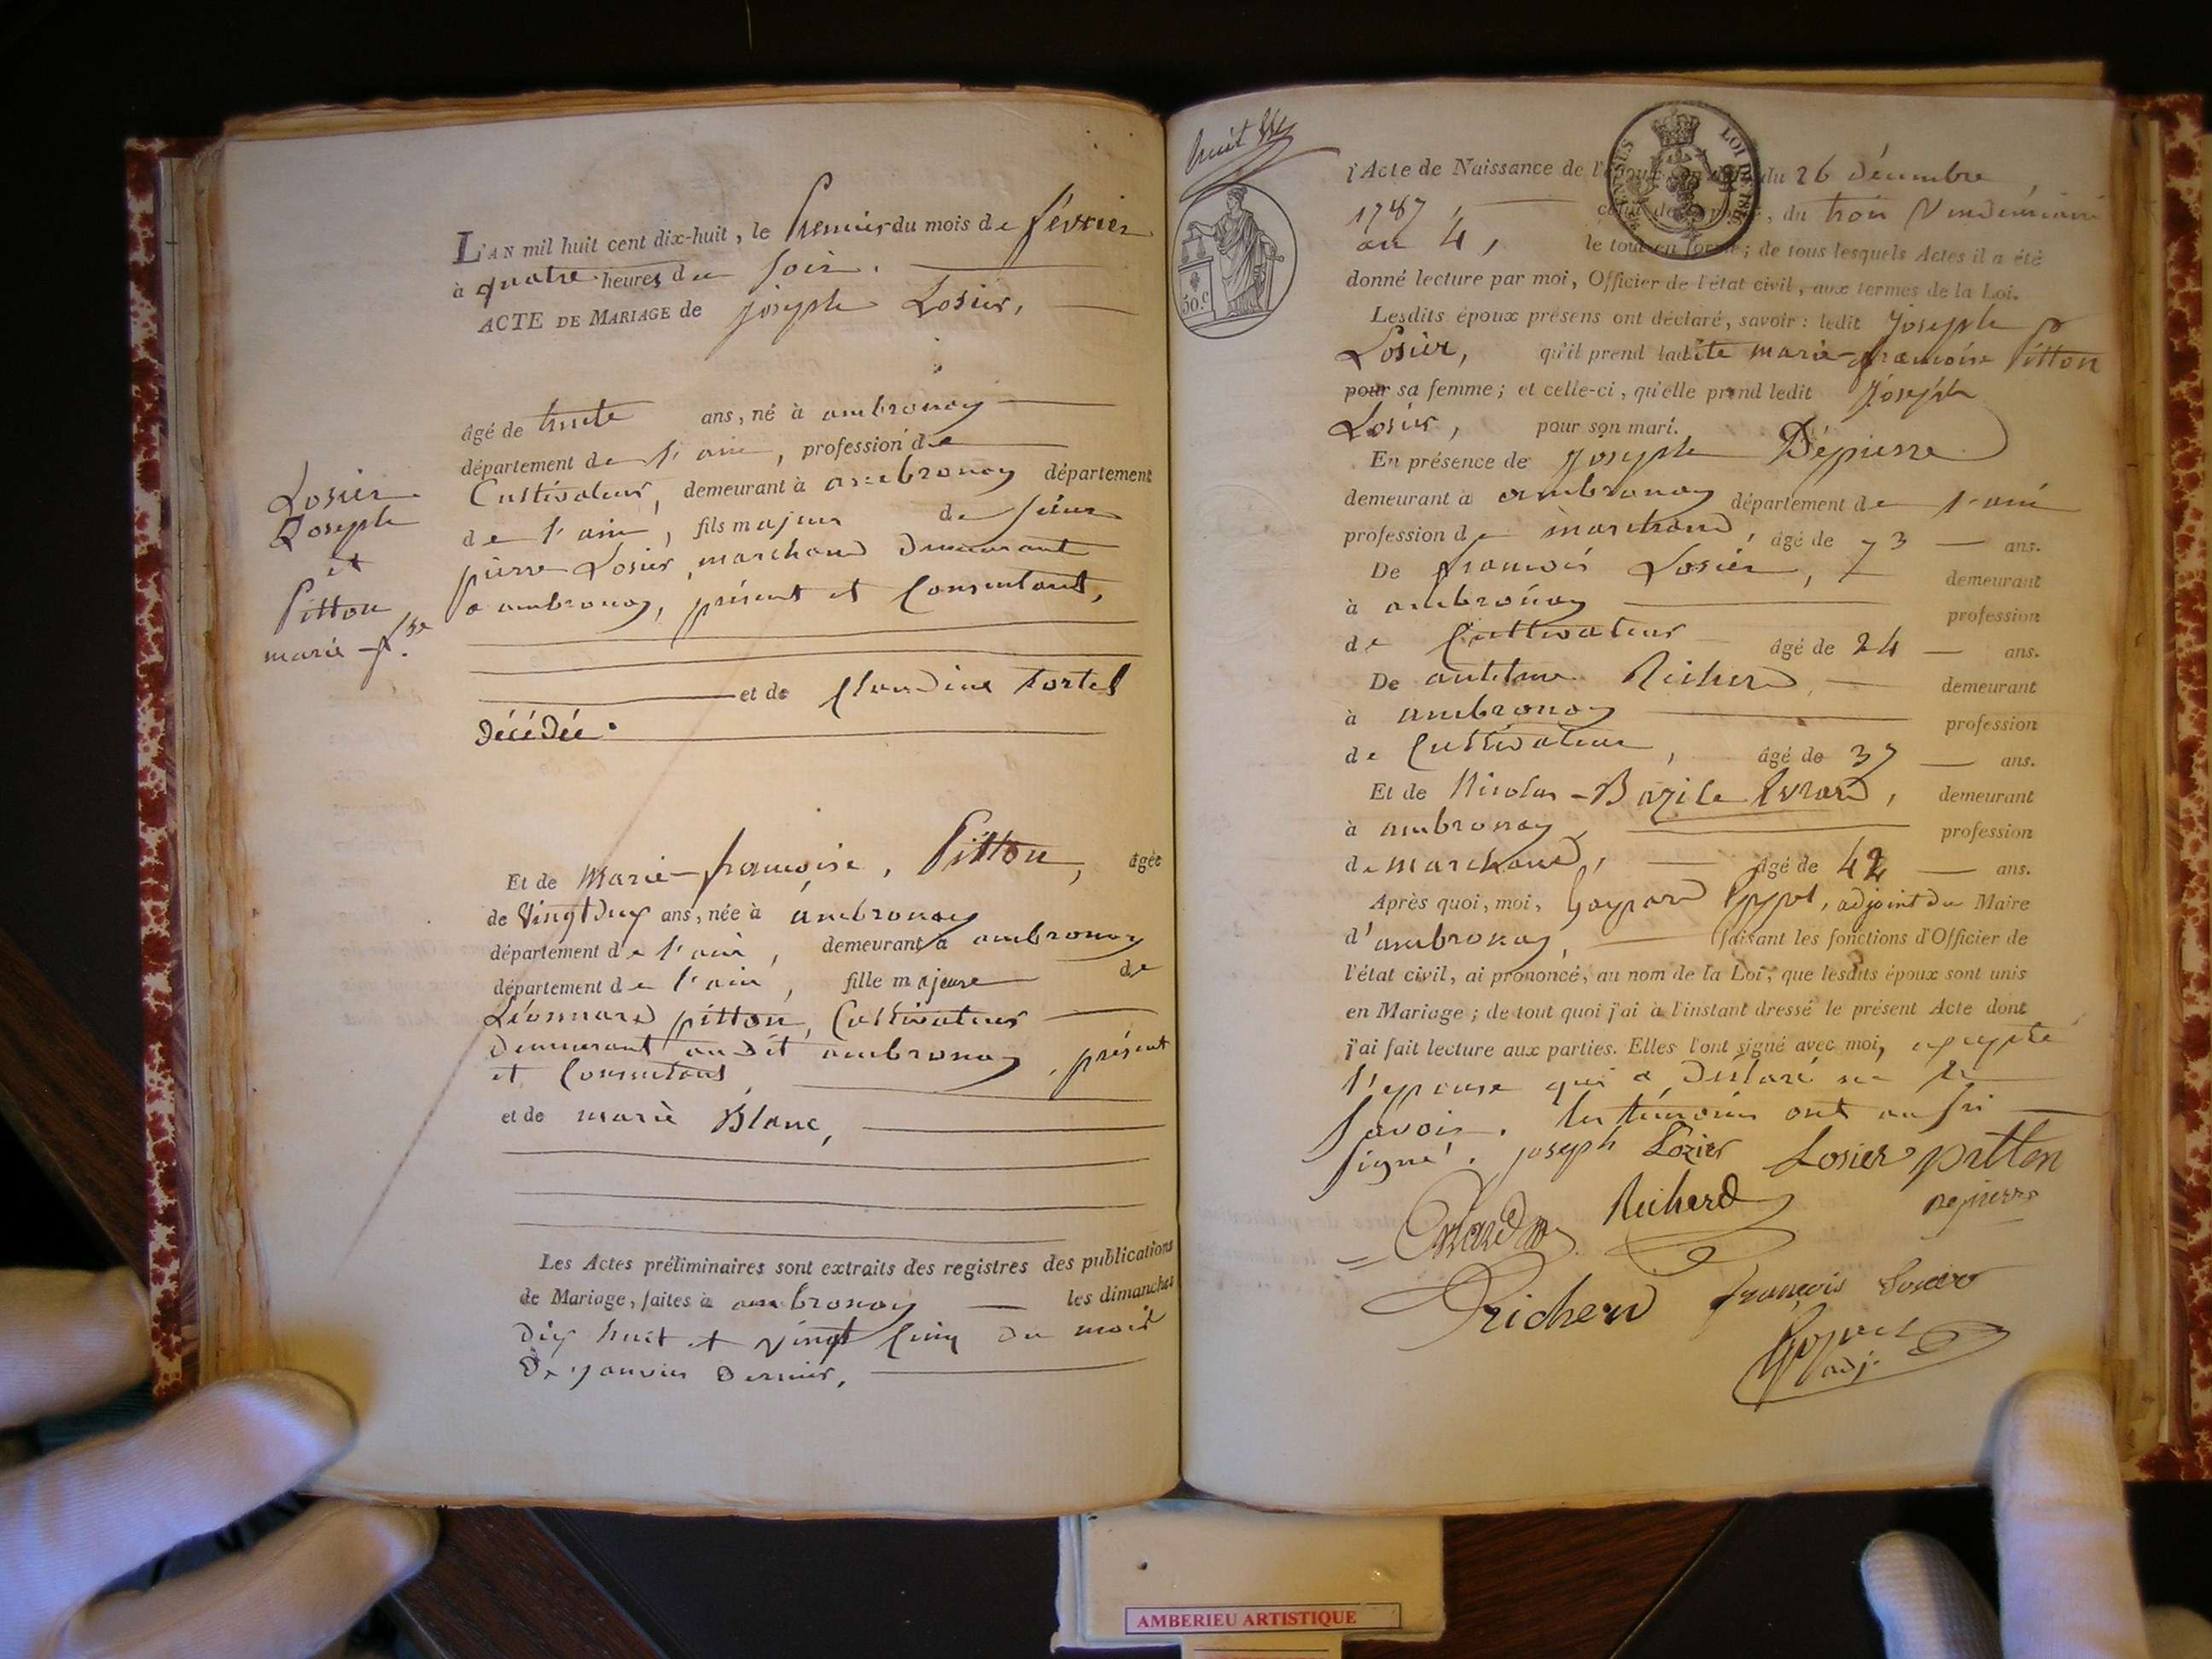 L'AN mil huit cent dix-huit, le Premier du mois de février
à quatre heures du soir.
ACTE DE MARIAGE de joseph Losier,
âgé de trente ans, né à ambronay
département de l'ain, profession de
Cultivateur, demeurant à ambronay département
de l'ain, fils majeur de sieur
pierre Losier, marchand demeurant
a ambronay, présent et Consentant,
et de Claudine tortel
décédée.
Losier
Joseph
et
Pitton
marie-fse
Et de Marie-françoise, Pitton, âgée
de Vingt deux ans, née à ambronay
département de l'ain, demeurant à ambronay
département de l'ain, fille majeure de
Léonnard pitton, Cultivateur
demeurant au dit ambronay, présent
et Consentant,
et de marie Blanc,
Les Actes préliminaires sont extraits des registres des publications
de Mariage, faites à ambronay les dimanches
dix huit et vingt cinq du mois
de janvier dernier,
huit
50.c
LOI DE
l'Acte de Naissance de l'époux, du 26 décembre
1787, celui de, du trois Vendemiaire
an 4, le tout en forme; de tous lesquels Actes il a été
donné lecture par moi, Officier de l'état civil, aux termes de la Loi.
Lesdits époux présens ont déclaré, savoir: ledit Joseph
Losier, qu'il prend ladite marie-françoise Pitton
pour sa femme; et celle-ci, qu'elle prend ledit Joseph
Losier, pour son mari.
En présence de Joseph Dépierre
demeurant à ambronay département de l'ain
profession de marchand, âgé de 73 ans.
De françois Losier, demeurant
à ambronay profession
de Cultivateur âgé de 24 ans.
De antelme Richerd, demeurant
à ambronay profession
de Cultivateur, âgé de 37 ans.
Et de Nicolas-Bazile Evrard, demeurant
à ambronay, profession
de marchand, âgé de 42 ans.
Après quoi, moi, Gaspard, adjoint du Maire
d'ambronay, faisant les fonctions d'Officier de
l'état civil, ai prononcé, au nom de la Loi, que lesdits époux sont unis
en Mariage; de tout quoi j'ai à l'instant dressé le présent Acte dont
j'ai fait lecture aux parties. Elles l'ont signé avec moi, excepté
l'epouse qui a déclaré ne le
Savoir. les témoins ont aussi
signé. joseph Lozier Losier pitton
Evrard Richerd depierre
Richerd françois Losier
adj.
AMBERIEU ARTISTIQUE